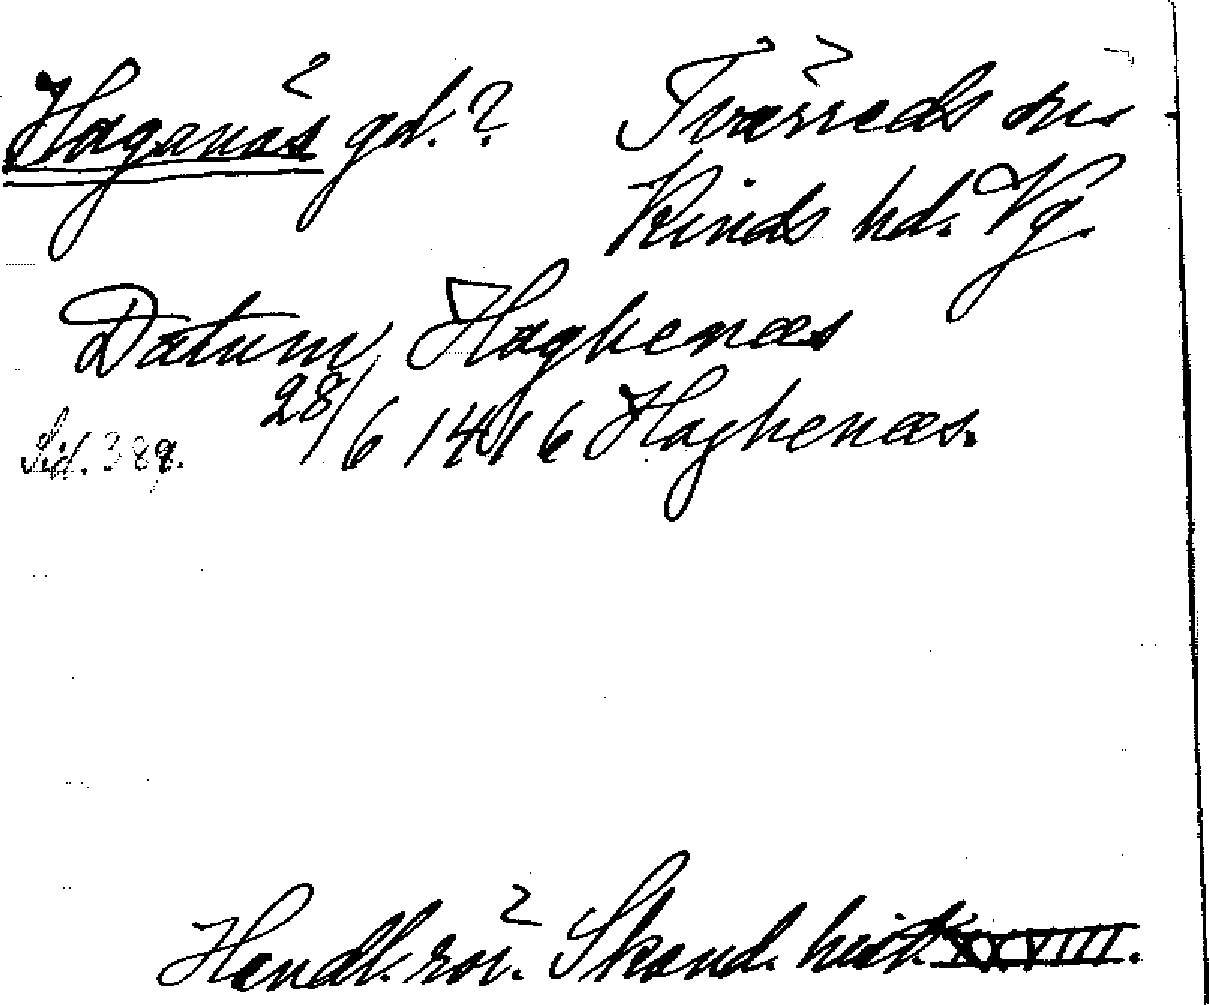 Hagenäs gd.? Tvärreds sn.
Kinds hd. Vg.
Datum, Haghenæs
28/6 1416 Haghenæs.
Sid. 389.
Handl. rör. Skand. hist. XXVIII.